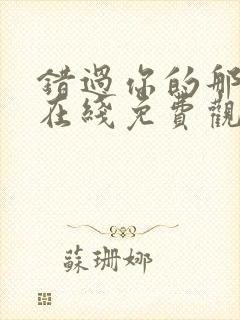 錯過你的那
在綫免費觀
蘇珊娜